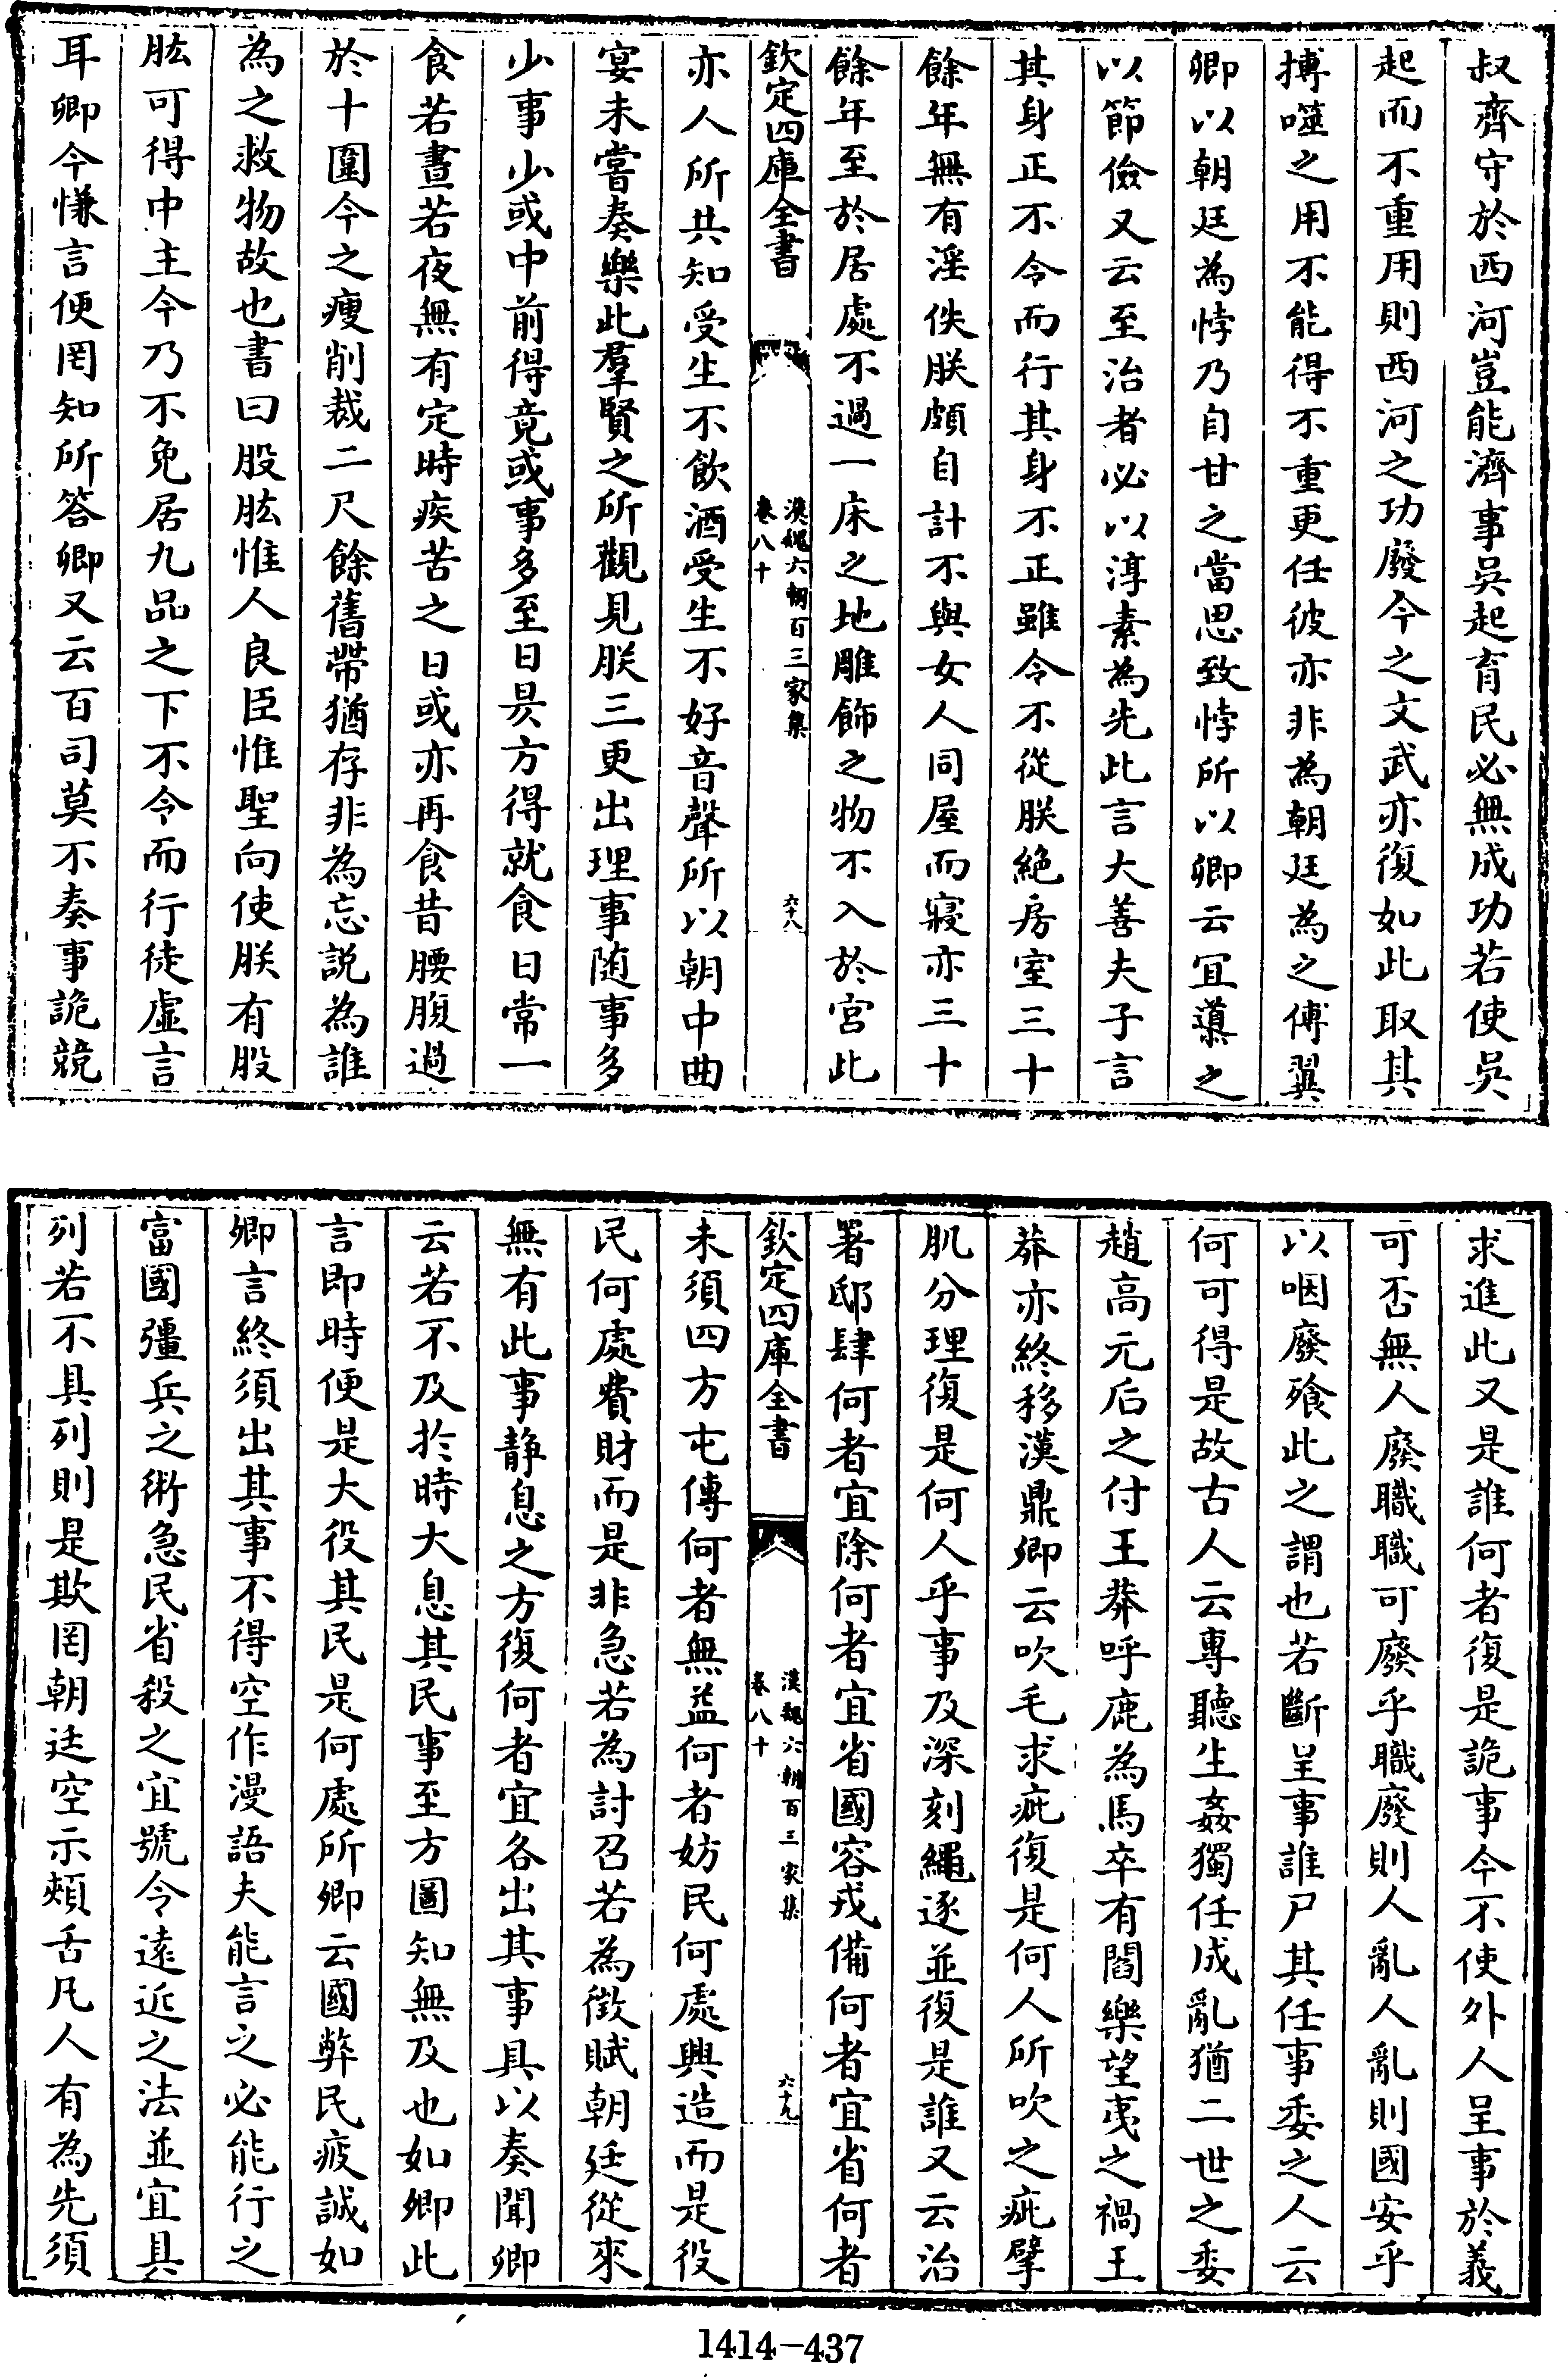 叔齊守於西河豈能濟事吳起育民必無成功若使吳
起而不重用則西河之功廢今之文武亦復如此取其
搏噬之用不能得不重更任彼亦非為朝廷為之傅翼
卿以朝廷為悖乃自甘之當思致悖所以卿云宜導之
以節儉又云至治者必以淳素為先此言大善夫子言
其身正不令而行其身不正雖令不從朕絕房室三十
餘年無有淫佚朕頗自計不與女人同屋而寢亦三十
餘年至於居處不過一床之地雕飾之物不入於宮此
欽定四庫全書
漢魏六朝百三家集
卷八十
六十八
亦人所共知受生不飲酒受生不好音聲所以朝中曲
宴未嘗奏樂此羣賢之所觀見朕三更出理事随事多
少事少或中前得竟或事多至日昃方得就食日常一
食若晝若夜無有定時疾苦之日或亦再食昔腰腹過
於十圍今之瘦削裁二尺餘舊帶猶存非為忘説為誰
為之救物故也書曰股肱惟人良臣惟聖向使朕有股
肱可得中主今乃不免居九品之下不令而行徒虛言
耳卿今慊言便罔知所答卿又云百司莫不奏事詭競
求進此又是誰何者復是詭事今不使外人呈事於義
可否無人廢職職可廢乎職廢則人亂人亂則國安乎
以咽廢飱此之謂也若斷呈事誰尸其任事委之人云
何可得是故古人云專聽生姦獨任成亂猶二世之委
趙高元后之付王莽呼鹿為馬卒有閻樂望夷之禍王
莽亦終移漢鼎卿云吹毛求疵復是何人所吹之疵擘
肌分理復是何人乎事及深刻繩逐並復是誰又云治
署邸肆何者宜除何者宜省國容戎備何者宜省何者
欽定四庫全書
漢魏六朝百三家集
卷八十
六十九
未須四方屯傳何者無益何者妨民何處興造而是役
民何處費財而是非急若為討召若為徵賦朝廷從來
無有此事静息之方復何者宜各出其事具以奏聞卿
云若不及於時大息其民事至方圖知無及也如卿此
言即時便是大役其民是何處所卿云國弊民疲誠如
卿言終須出其事不得空作漫語夫能言之必能行之
富國彊兵之術急民省殺之宜號令遠近之法並宜具
列若不具列則是欺罔朝廷空示頰舌凡人有為先須
1414-437